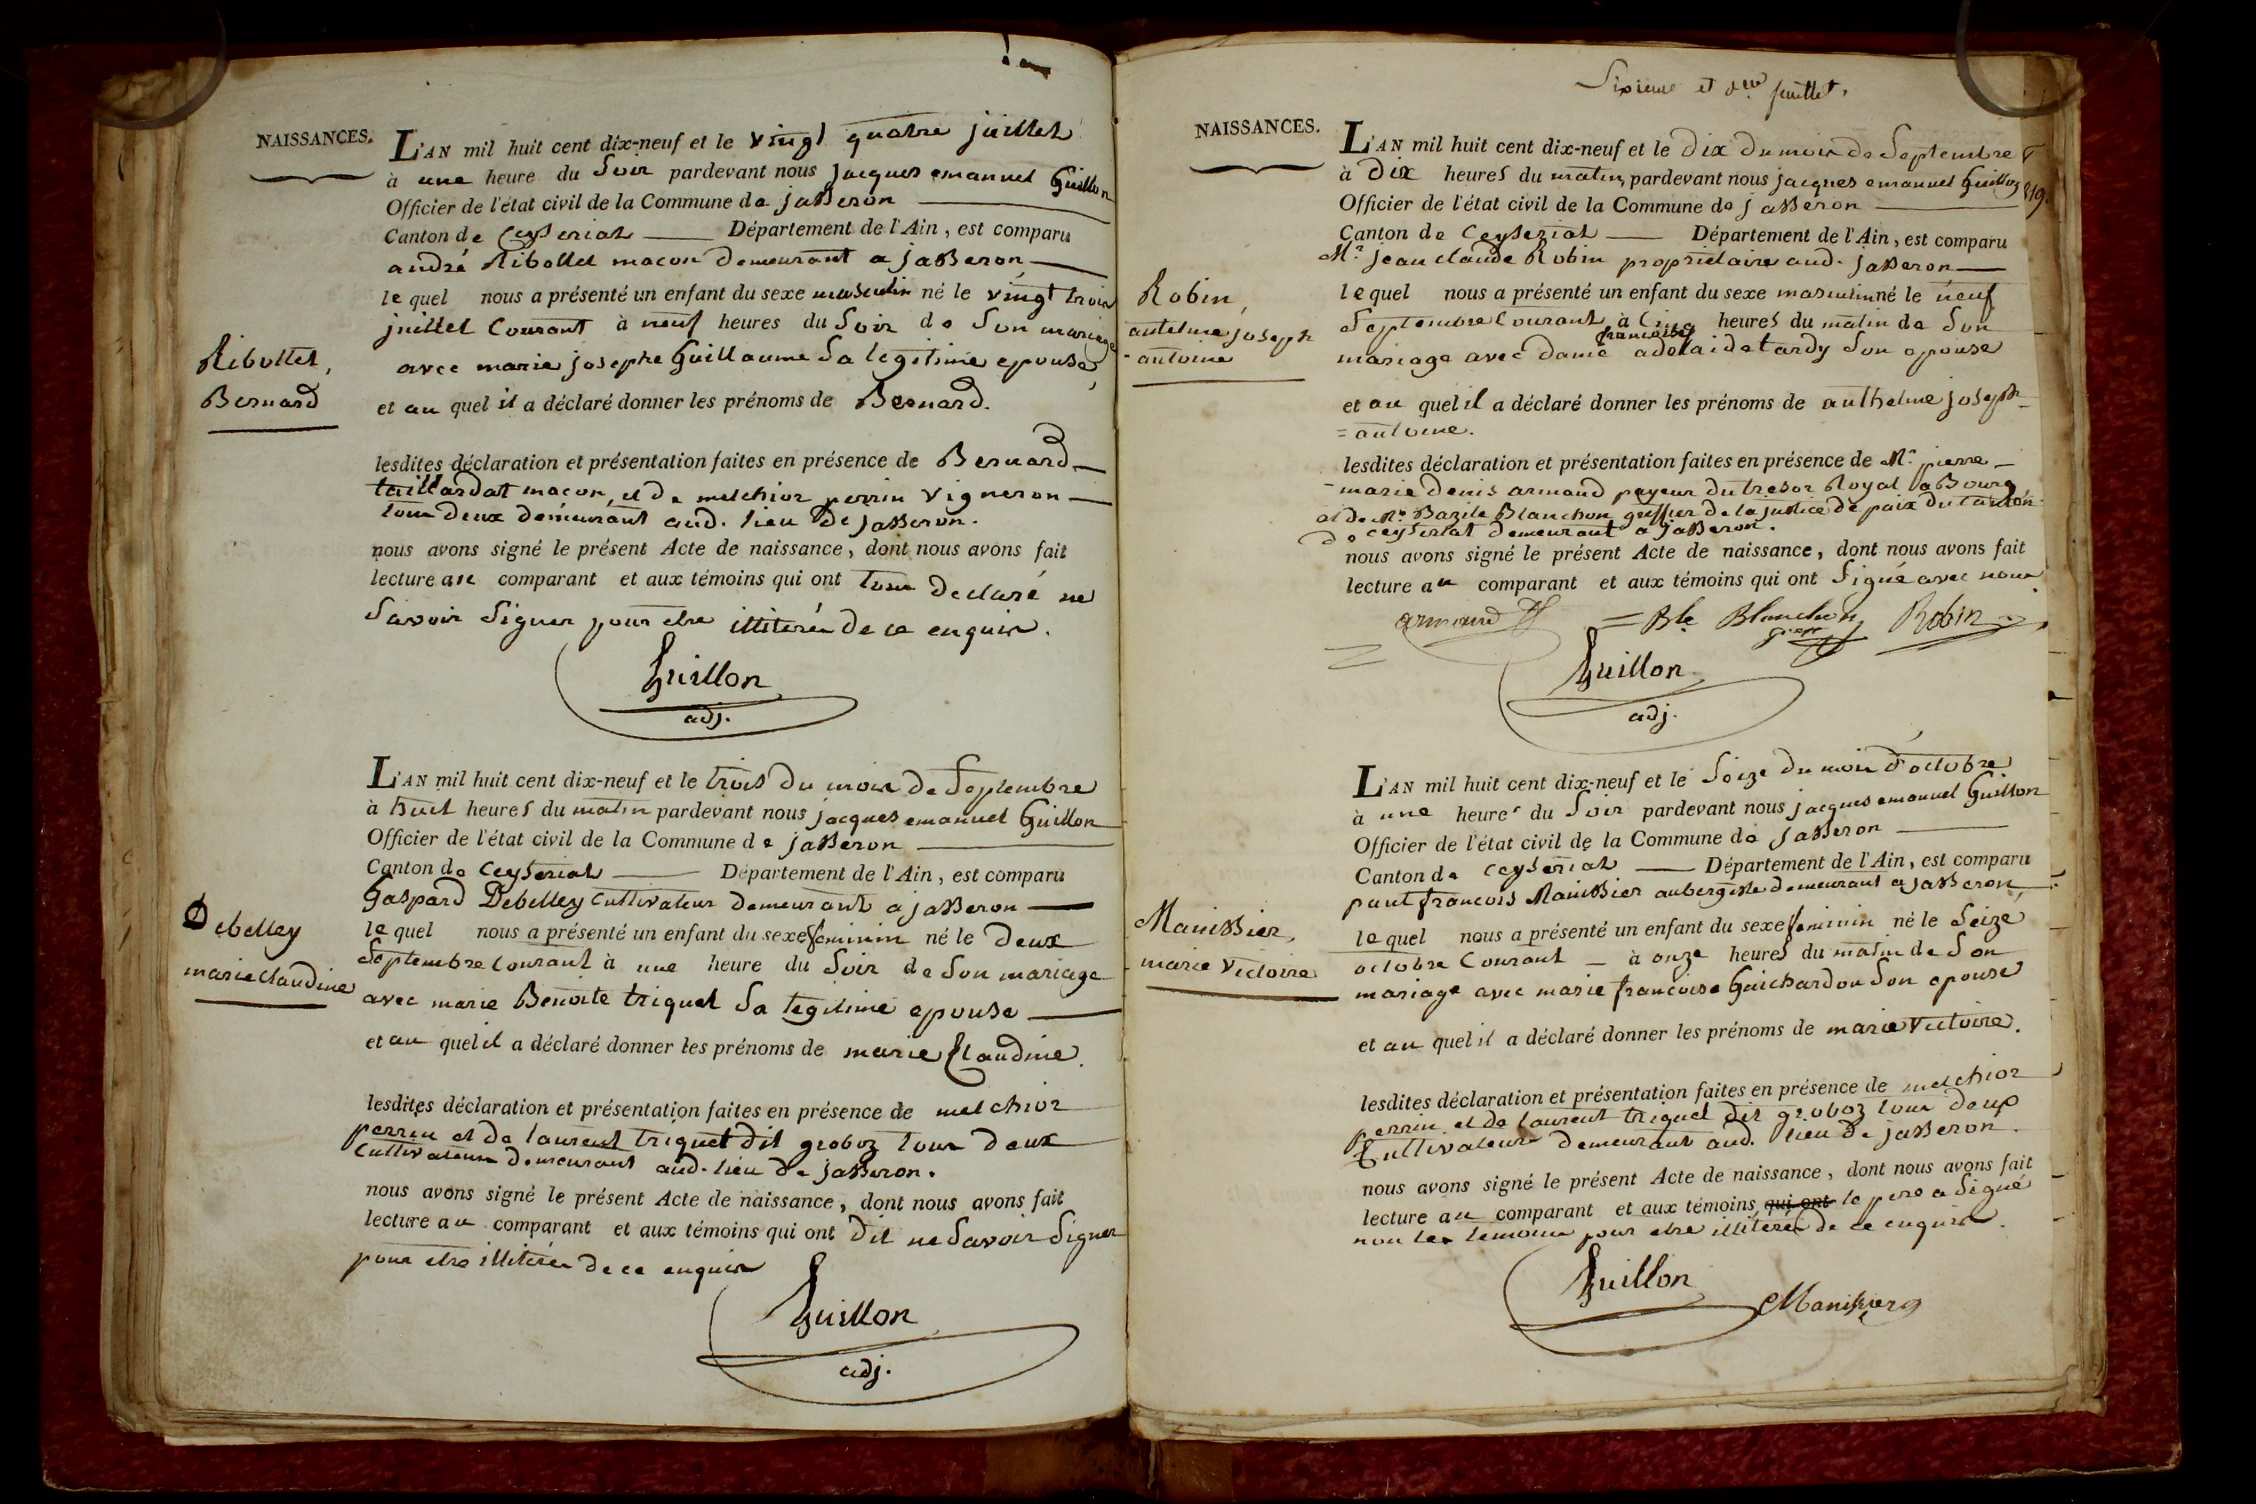 NAISSANCES.
L'AN mil huit cent dix-neuf et le vingt quatre juillet
à une heure du Soir pardevant nous jacques emanuel Guillon
Officier de l'état civil de la Commune de jasseron
Canton de Ceyseriat Département de l'Ain, est comparu
andré Ribollet macon demeurant a jasseron
lequel nous a présenté un enfant du sexe masculin né le vingt trois
juillet Courant à neuf heures du Soir de Son mariage
avec marie josephe Guillaume Sa legitime epouse
Ribollet,
Bernard
et au quel il a déclaré donner les prénoms de Bernard.
lesdites déclaration et présentation faites en présence de Bernard
taillardat macon, et de melchior perrin vigneron
tous deux demeurant aud. lieu de jasseron.
nous avons signé le présent Acte de naissance, dont nous avons fait
lecture au comparant et aux témoins qui ont tous declaré ne
Savoir Signer pour etre illiterés de ce enquis.
Guillon
adj.
L'AN mil huit cent dix-neuf et le trois du mois de Septembre
à huit heures du matin pardevant nous jacques emanuel Guillon
Officier de l'état civil de la Commune de jasseron
Canton de Ceyseriat Département de l'Ain, est comparu
Gaspard Debelley Cultivateur demeurant a jasseron
lequel nous a présenté un enfant du sexe feminin né le deux
Septembre Courant à une heure du Soir de Son mariage
avec marie Benoite triquet Sa legitime epouse
Debelley
marie Claudine
et au quel il a déclaré donner les prénoms de marie Claudine.
lesdites déclaration et présentation faites en présence de melchior
perrin et de laurent triquet dit groboz tous deux
Cultivateurs demeurant aud. lieu de jasseron.
nous avons signé le présent Acte de naissance, dont nous avons fait
lecture au comparant et aux témoins qui ont dit ne Savoir Signer
pour etre illiterés de ce enquis
Guillon
adj.
Sixieme et dier feuillet.
NAISSANCES.
L'AN mil huit cent dix-neuf et le dix du mois de Septembre
à dix heures du matin, pardevant nous jacques emanuel Guillon
Officier de l'état civil de la Commune de jasseron
Canton de Ceyseriat Département de l'Ain, est comparu
Mr. jean claude Robin proprietaire aud. jasseron
lequel nous a présenté un enfant du sexe masculin né le neuf
Septembre Courant à Cinq heures du matin de Son
francoise
mariage avec dame adelaide tardy Son epouse
Robin,
antelme joseph
-antoine
et au quel il a déclaré donner les prénoms de anthelme joseph-
=antoine.
lesdites déclaration et présentation faites en présence de Mr. pierre
-marie denis armand payeur du tresor Royal a Bourg
et de Mr. Bazile Blanchon greffier de la justice de paix du Canton
de ceyseriat demeurant a jasseron.
nous avons signé le présent Acte de naissance, dont nous avons fait
lecture au comparant et aux témoins qui ont Signé avec nous.
armand = Ble Blanchon Robin
greff
Guillon
adj.
L'AN mil huit cent dix-neuf et le Seize du mois d'octobre
à une heure du Soir pardevant nous jacques emanuel Guillon
Officier de l'état civil de la Commune de jasseron
Canton de Ceyseriat Département de l'Ain, est comparu
francois Manissier aubergiste demeurant a jasseron
lequel nous a présenté un enfant du sexe feminin né le Seize
octobre Courant à onze heures du matin de Son
mariage avec marie francoise Guichardon Son epouse
Manissier,
marie Victoire
et au quel il a déclaré donner les prénoms de marie Victoire.
lesdites déclaration et présentation faites en présence de melchior
perrin et de laurent triquet dit groboz tous deux
Cultivateurs demeurant aud. lieu de jasseron.
nous avons signé le présent Acte de naissance, dont nous avons fait
lecture au comparant et aux témoins, qui ont le pere a Signé
non les temoins pour etre illiterés de ce enquis.
Guillon
Manissier